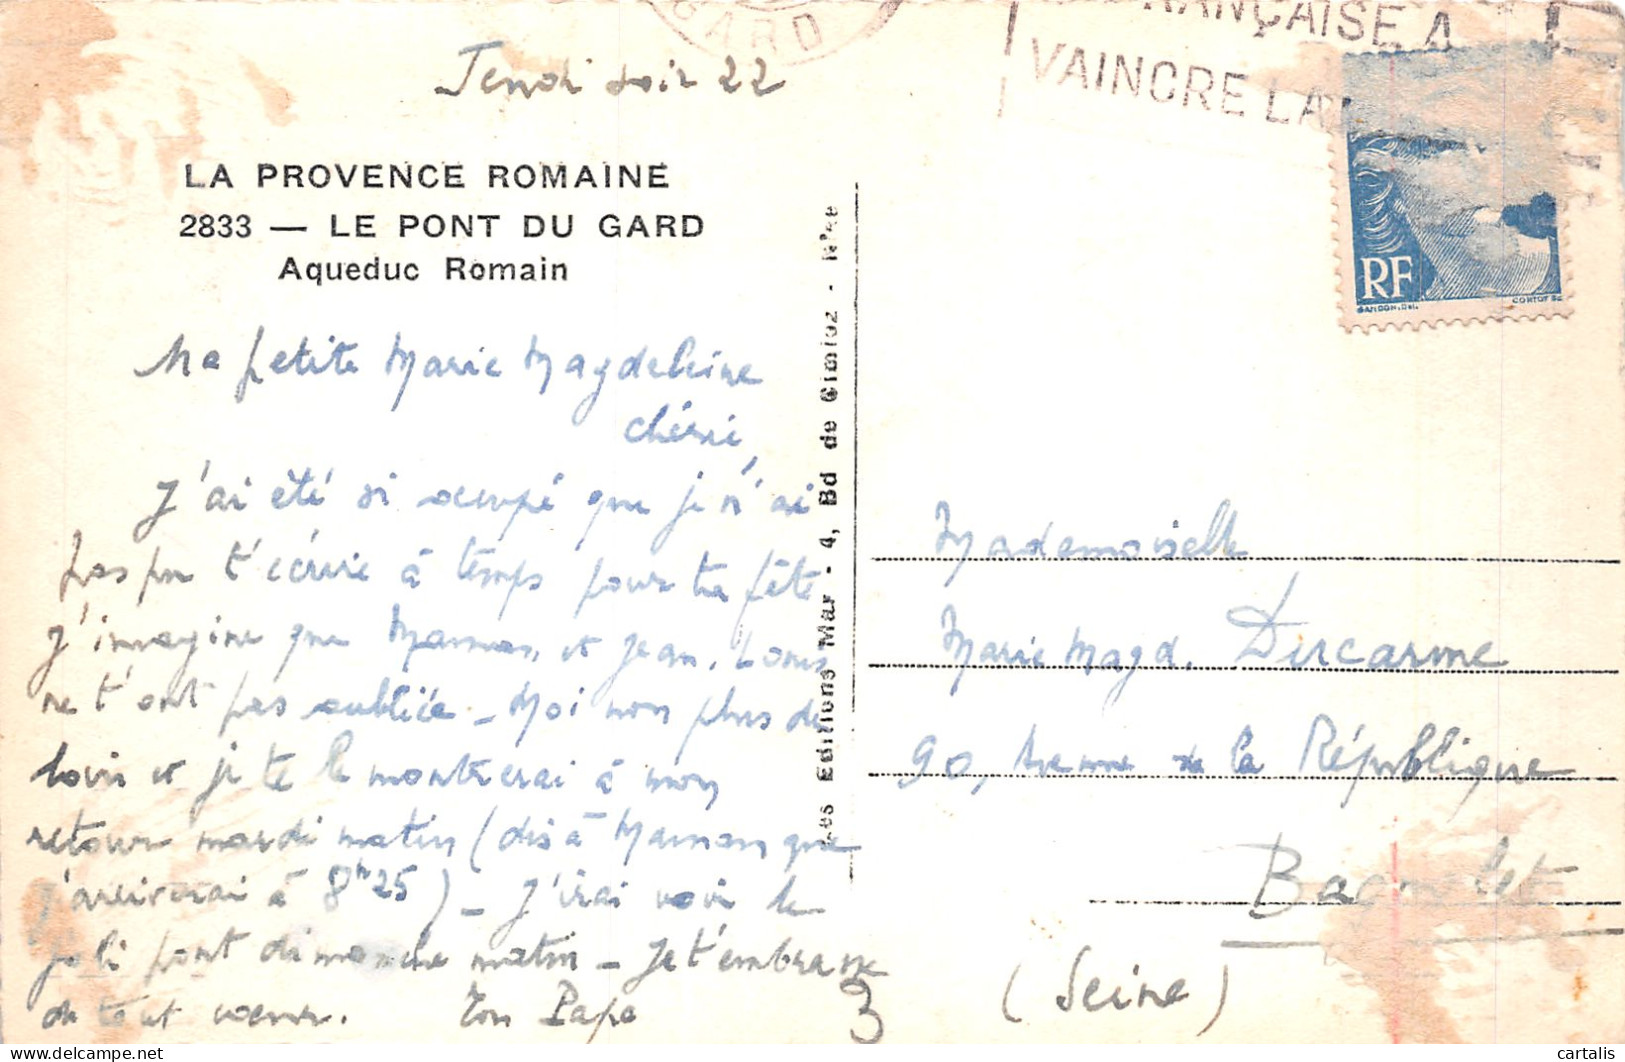 GARD
FRANÇAISE A
VAINCRE LA
Jeudi soir 22
LA PROVENCE ROMAINE
2833 — LE PONT DU GARD
Aqueduc Romain
RF
GANDON.Del.
CORTOT SC
Ma petite Marie Magdeleine
chérie,
J'ai été si occupé que je n'ai
pas pu t'écrire à temps pour ta fête
J'imagine que Maman et Jean-Louis
ne t'ont pas oubliée - Moi non plus de
loin et je te le montrerai à mon
retour mardi matin (dis à Maman que
j'arriverai à 8h25) - J'irai voir le
joli pont dimanche matin - Je t'embrasse
de tout coeur. Ton Papa
3
Les Editions Mar - 4, Bd de Cimiez - Nice
Mademoiselle
Marie Magd. Ducarme
90, Avenue de la République
Bagnolet
(Seine)
cartalis
www.delcampe.net